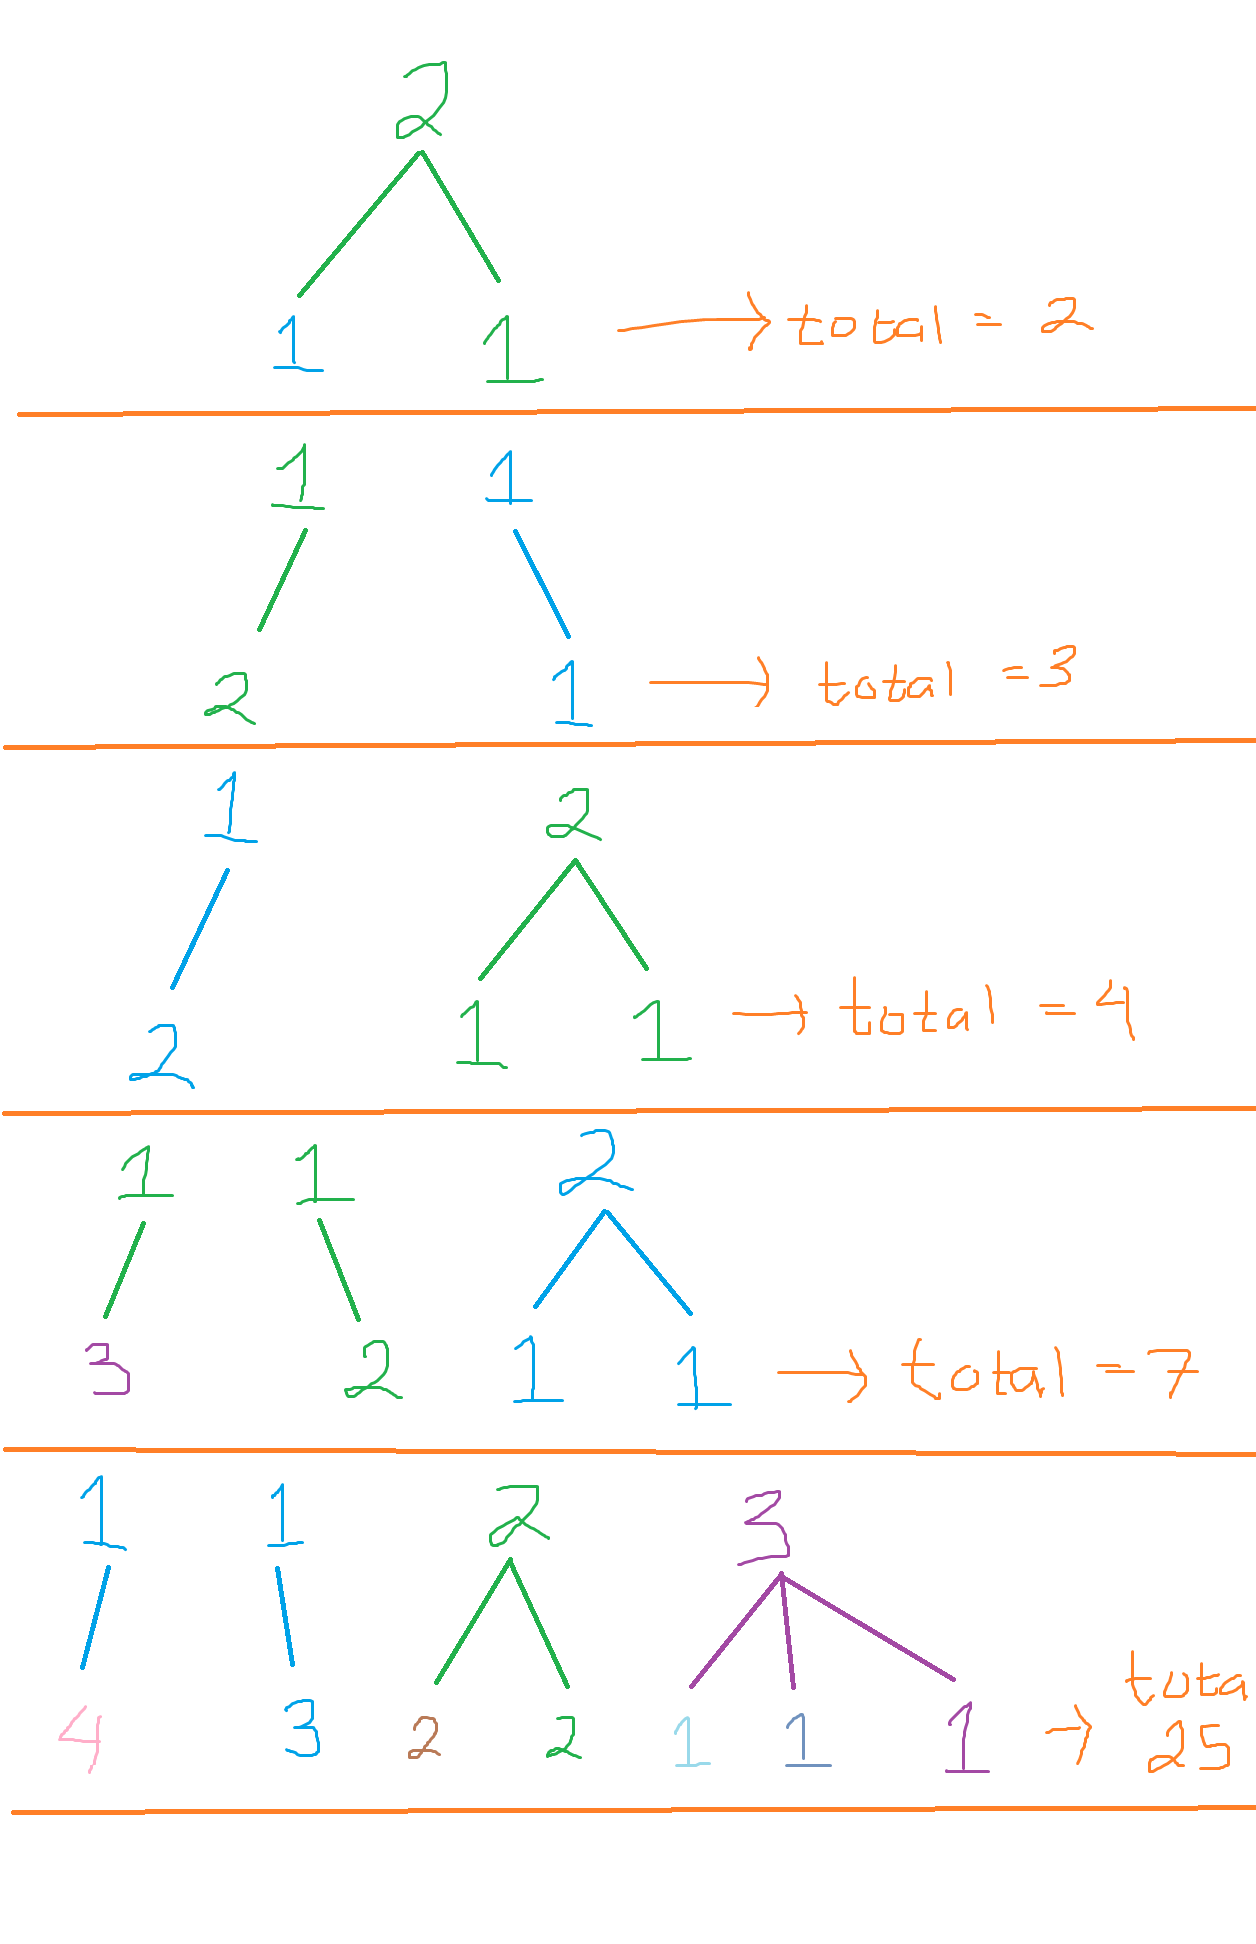 2
1 1 total = 2
1 1
2 1 total = 3
1 2
2 1 1 total = 4
1 1 2
3 2 1 1 total = 7
1 1 2 3
4 3 2 2 1 1 1 tota
25